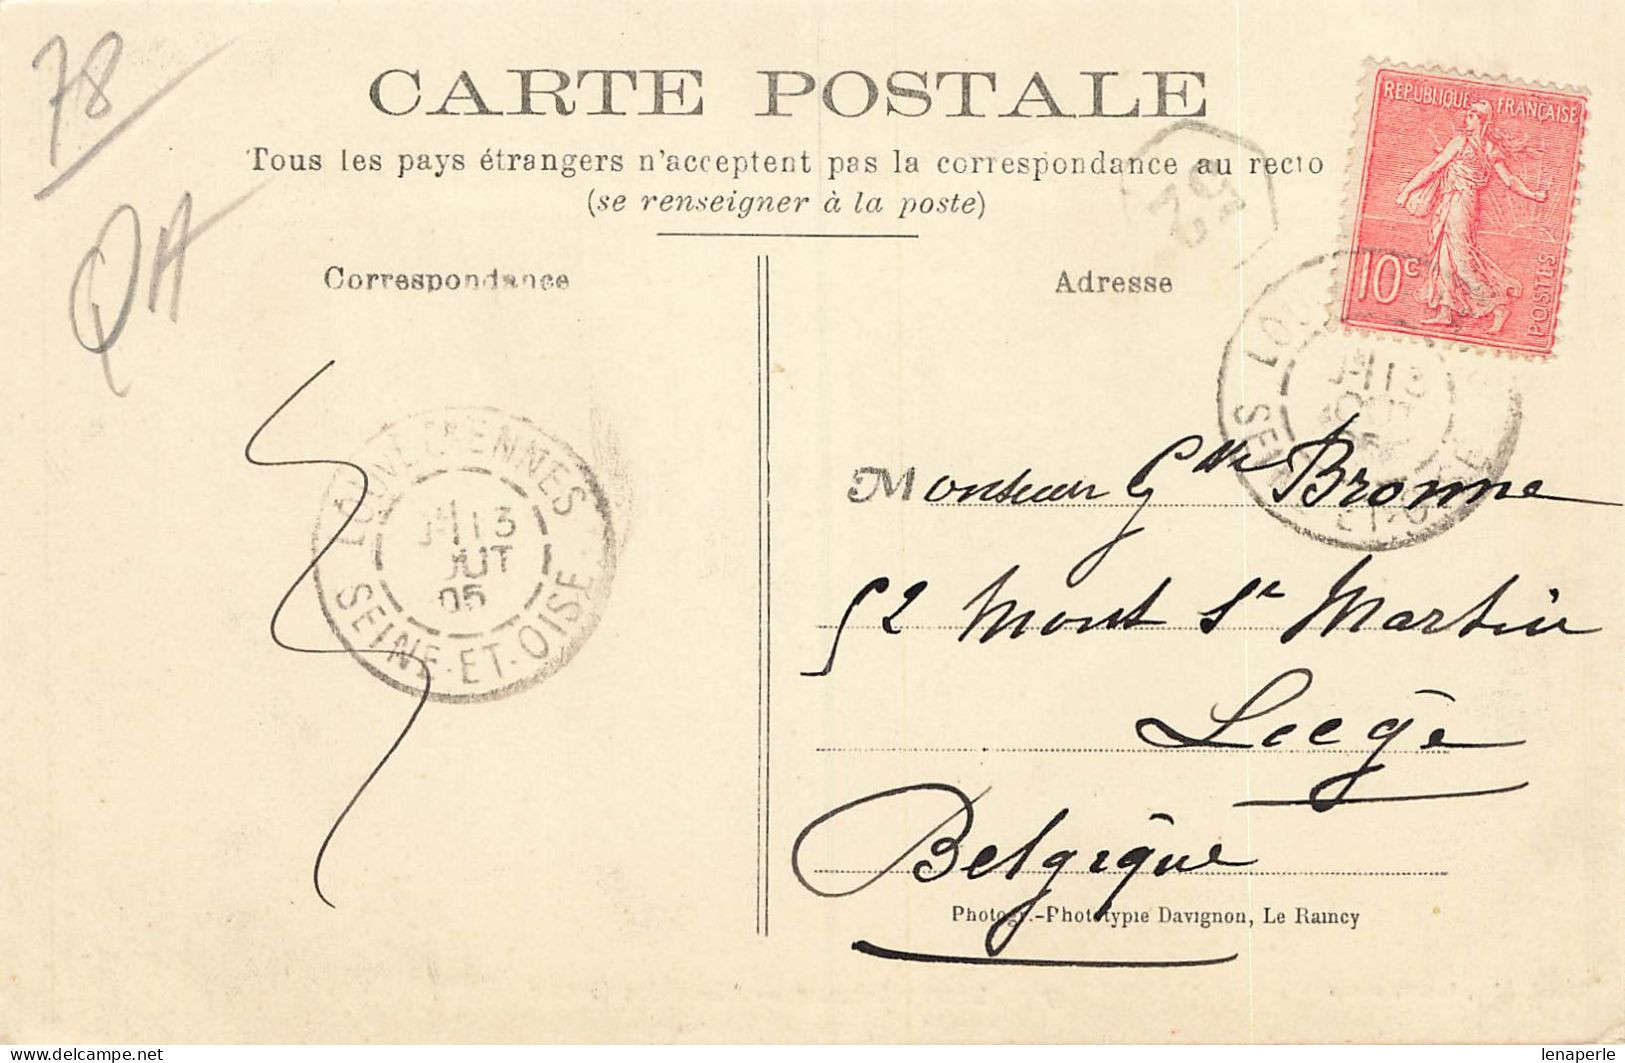 78
QA
CARTE POSTALE
Tous les pays étrangers n'acceptent pas la correspondance au recto
(se renseigner à la poste)
Correspondance
Adresse
52
REPUBLIQUE FRANÇAISE
10c
POSTES
LOUVECIENNES
13
OUT
05
SEINE-ET-OISE
13
SEINE-ET-OISE
Monsieur Gve Bronne
52 Mont St Martin
Liège
Belgique
Photogr.-Phototypie Davignon, Le Raincy
lenaperle